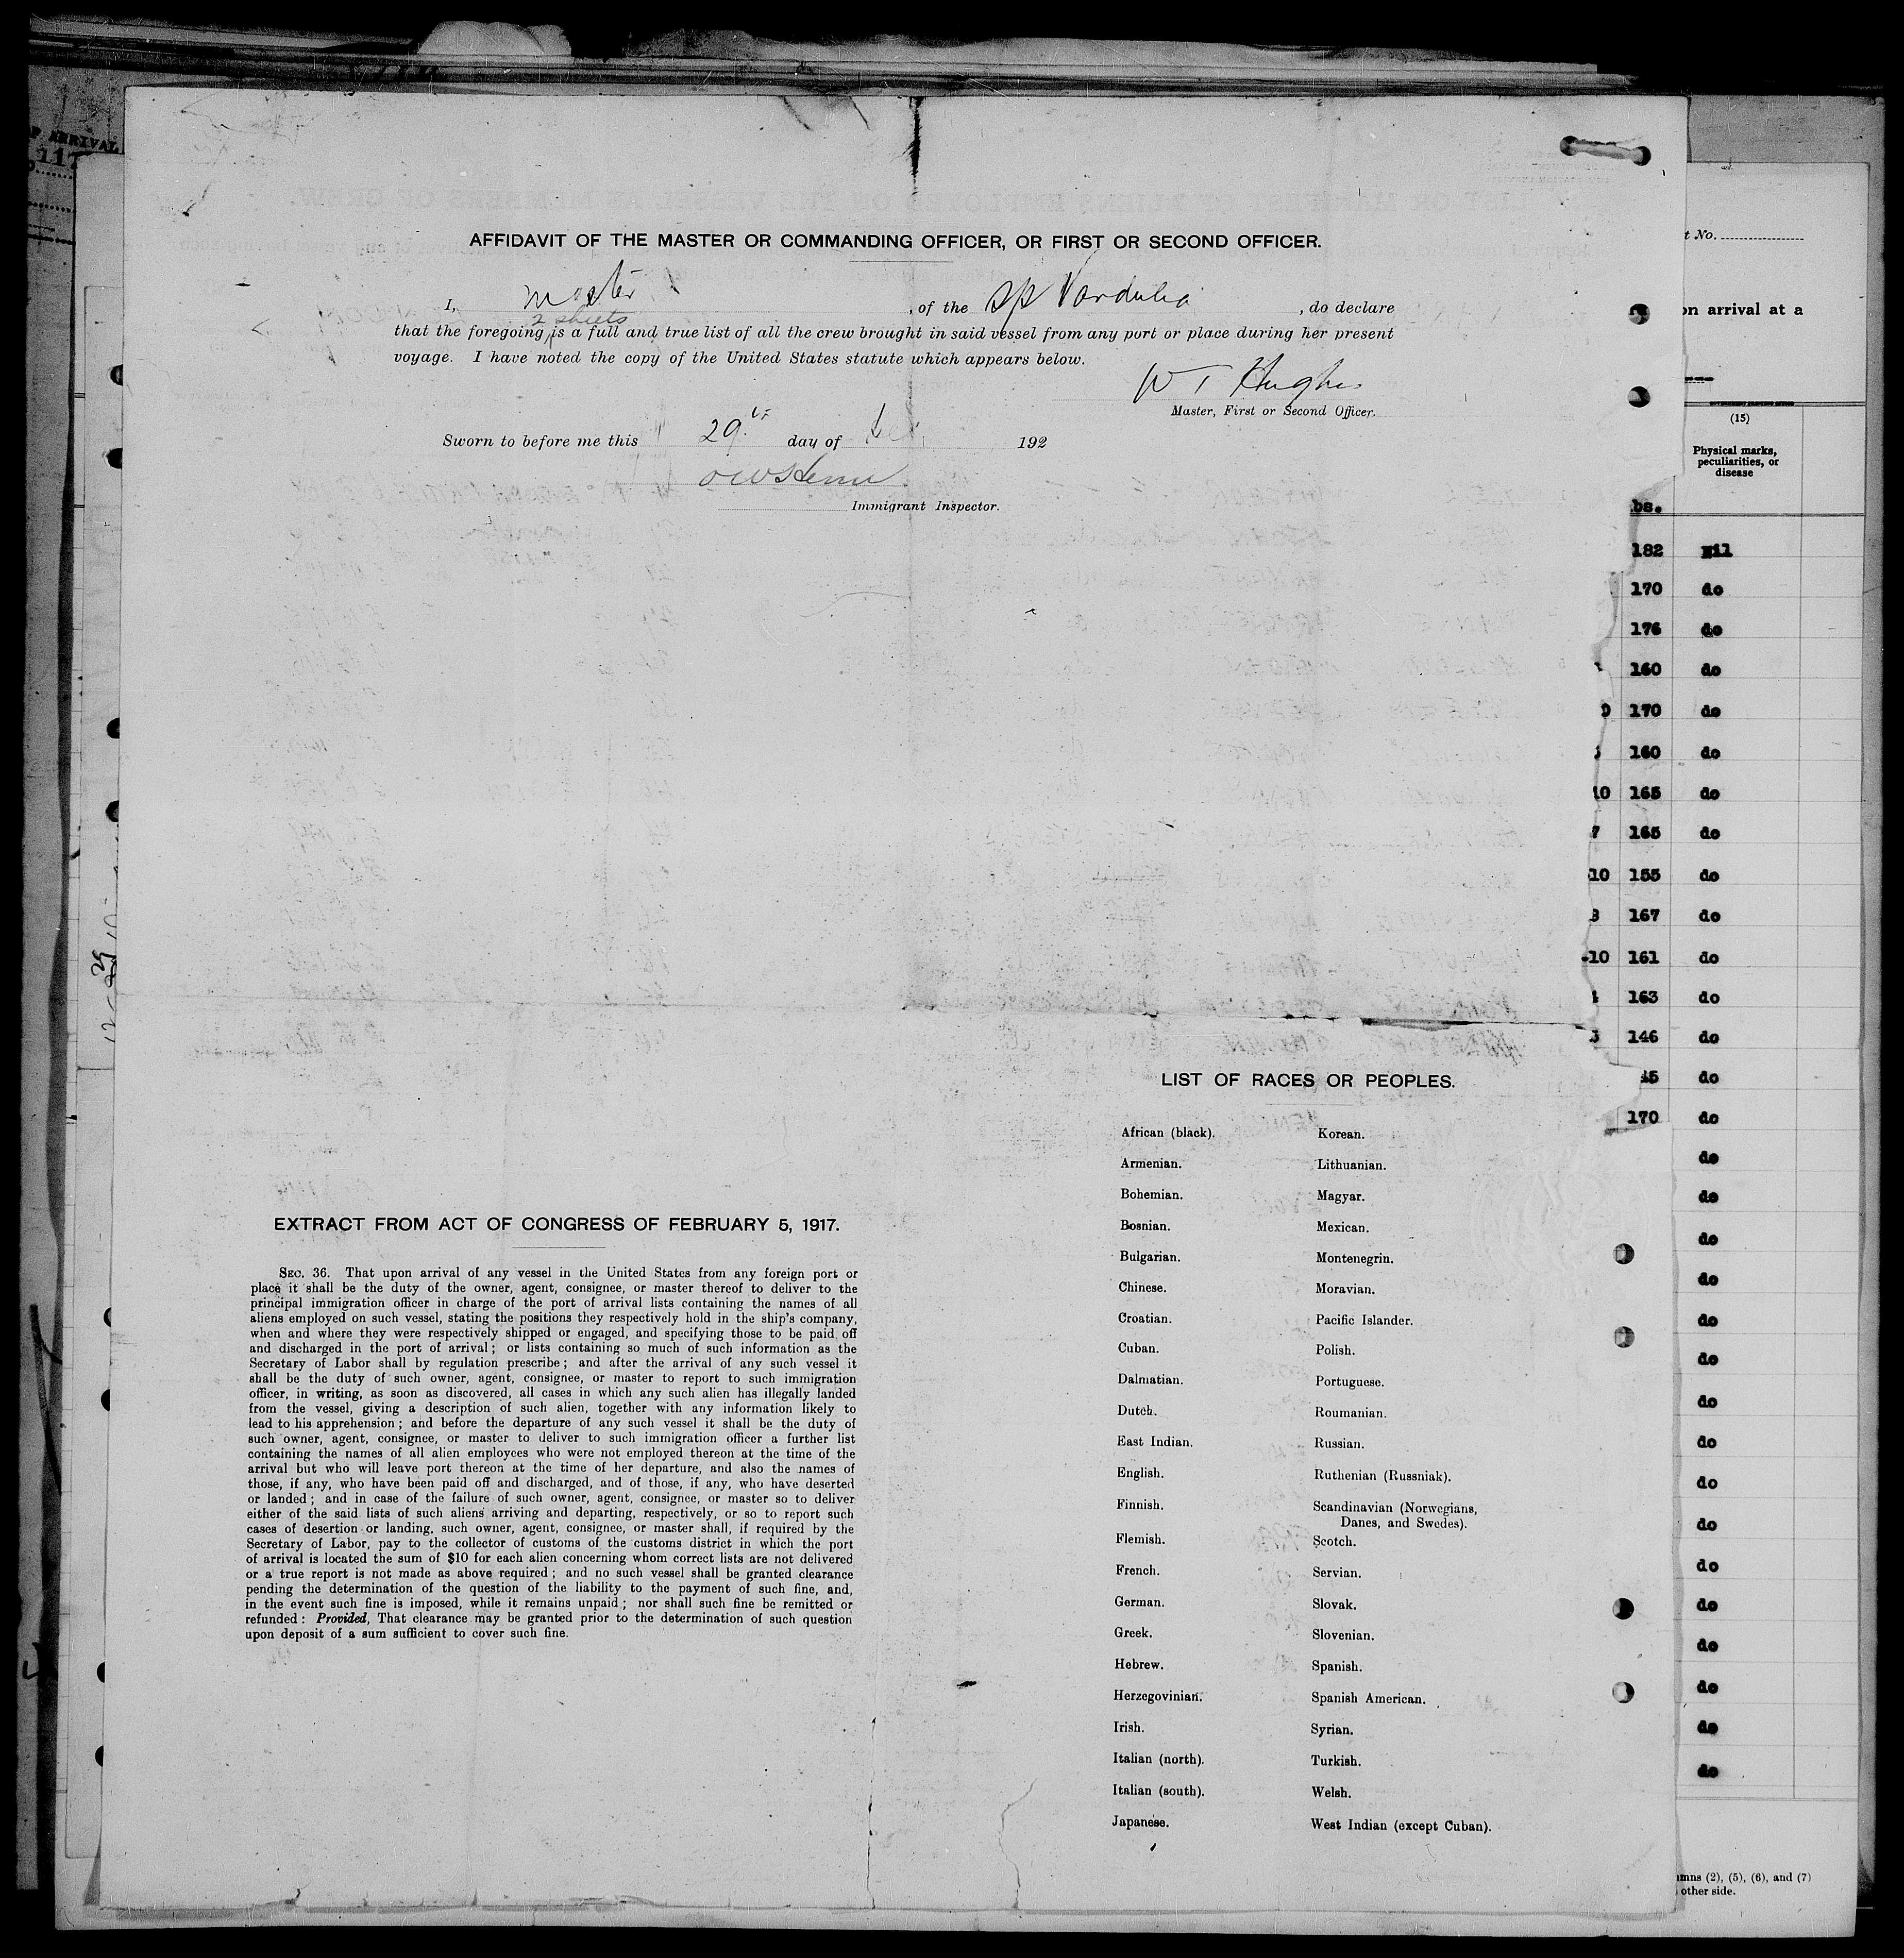 ARRIVAL
117
AFFIDAVIT OF THE MASTER OR COMMANDING OFFICER, OR FIRST OR SECOND OFFICER.
I, Master, of the S/S Vardulia, do declare
2 sheets
that the foregoing is a full and true list of all the crew brought in said vessel from any port or place during her present
voyage. I have noted the copy of the United States statute which appears below.
W T Hughes
Master, First or Second Officer.
Sworn to before me this 29th day of 192
Immigrant Inspector.
LIST OF RACES OR PEOPLES.
African (black). Korean.
Armenian. Lithuanian.
Bohemian. Magyar.
Bosnian. Mexican.
Bulgarian. Montenegrin.
Chinese. Moravian.
Croatian. Pacific Islander.
Cuban. Polish.
Dalmatian. Portuguese.
Dutch. Roumanian.
East Indian. Russian.
English. Ruthenian (Russniak).
Finnish. Scandinavian (Norwegians,
Danes, and Swedes).
Flemish. Scotch.
French. Servian.
German. Slovak.
Greek. Slovenian.
Hebrew. Spanish.
Herzegovinian. Spanish American.
Irish. Syrian.
Italian (north). Turkish.
Italian (south). Welsh.
Japanese. West Indian (except Cuban).
EXTRACT FROM ACT OF CONGRESS OF FEBRUARY 5, 1917.
SEC. 36. That upon arrival of any vessel in the United States from any foreign port or
place it shall be the duty of the owner, agent, consignee, or master thereof to deliver to the
principal immigration officer in charge of the port of arrival lists containing the names of all
aliens employed on such vessel, stating the positions they respectively hold in the ship's company,
when and where they were respectively shipped or engaged, and specifying those to be paid off
and discharged in the port of arrival; or lists containing so much of such information as the
Secretary of Labor shall by regulation prescribe; and after the arrival of any such vessel it
shall be the duty of such owner, agent, consignee, or master to report to such immigration
officer, in writing, as soon as discovered, all cases in which any such alien has illegally landed
from the vessel, giving a description of such alien, together with any information likely to
lead to his apprehension; and before the departure of any such vessel it shall be the duty of
such owner, agent, consignee, or master to deliver to such immigration officer a further list
containing the names of all alien employees who were not employed thereon at the time of the
arrival but who will leave port thereon at the time of her departure, and also the names of
those, if any, who have been paid off and discharged, and of those, if any, who have deserted
or landed; and in case of the failure of such owner, agent, consignee, or master so to deliver
either of the said lists of such aliens arriving and departing, respectively, or so to report such
cases of desertion or landing, such owner, agent, consignee, or master shall, if required by the
Secretary of Labor, pay to the collector of customs of the customs district in which the port
of arrival is located the sum of $10 for each alien concerning whom correct lists are not delivered
or a true report is not made as above required; and no such vessel shall be granted clearance
pending the determination of the question of the liability to the payment of such fine, and,
in the event such fine is imposed, while it remains unpaid; nor shall such fine be remitted or
refunded: Provided, That clearance may be granted prior to the determination of such question
upon deposit of a sum sufficient to cover such fine.
t No.
on arrival at a
(15)
Physical marks,
peculiarities, or
disease
bs.
182 Nil
170 do
176 do
160 do
170 do
160 do
10 165 do
7 165 do
10 155 do
3 167 do
-10 161 do
163 do
146 do
45 do
170 do
do
do
do
do
do
do
do
do
do
do
do
do
do
do
do
do
umns (2), (5), (6), and (7)
other side.